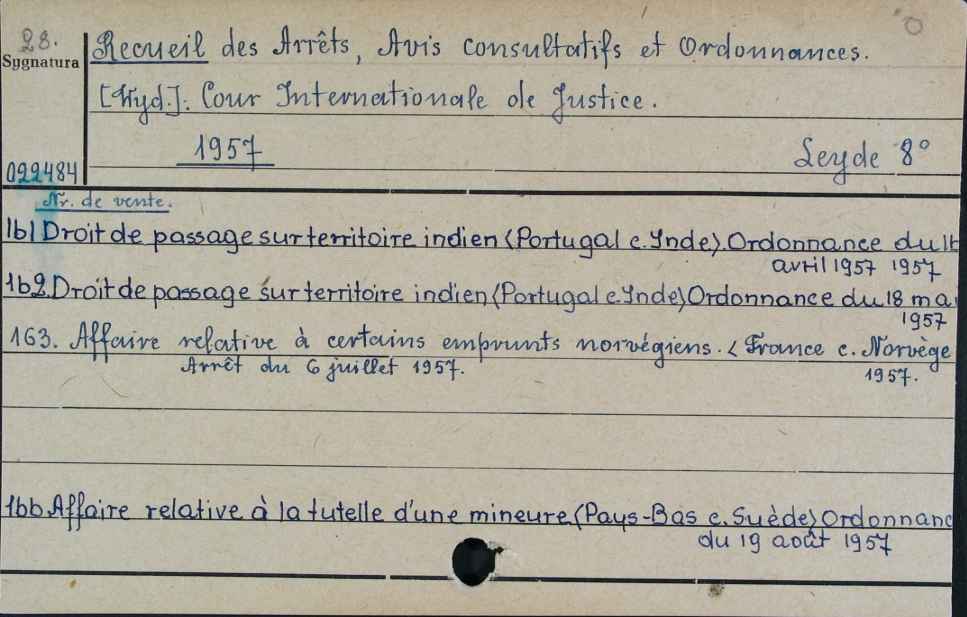 28.
Sygnatura
022484
Recueil des Arrêts, Avis consultatifs et Ordonnances.
[Wyd.]: Cour Internationale de Justice.
1957 Leyde 8°
Nr. de vente.
161 Droit de passage sur territoire indien (Portugal c. Inde). Ordonnance du
avril 1957 1957
162. Droit de passage sur territoire indien (Portugal c. Inde) Ordonnance du 18 ma
1957
163. Affaire relative à certains emprunts norvégiens. (France c. Norvège
Arrêt du 6 juillet 1957. 1957.
166 Affaire relative à la tutelle d'une mineure (Pays-Bas c. Suède) Ordonnanc
du 19 août 1957